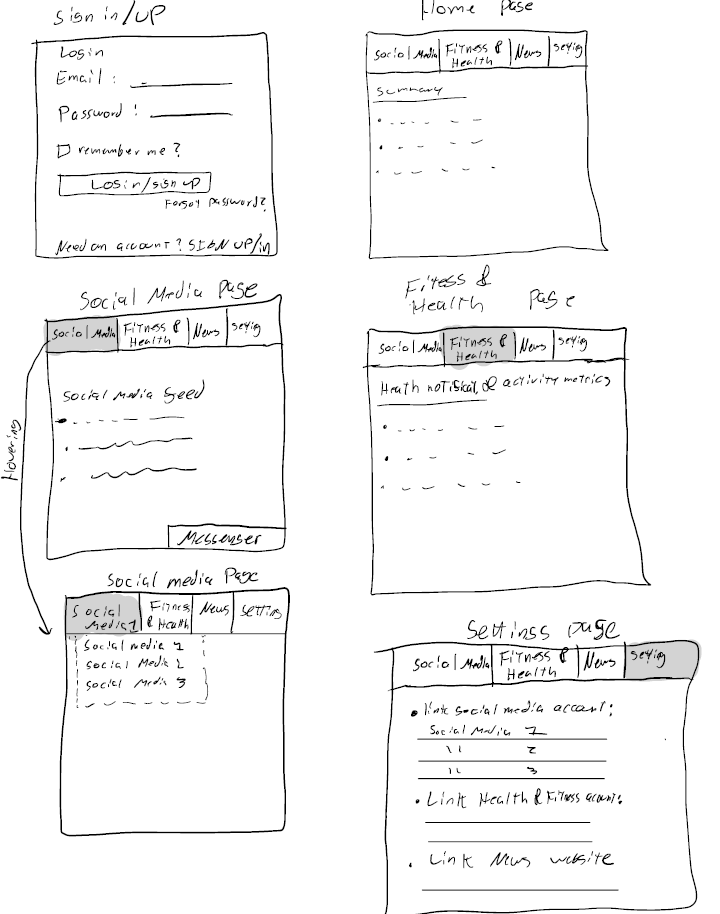 Sign in/UP
Login
Email :
Password :
remember me ?
Login/sign up
Forgot password?
Need an account? SIGN UP/in
Home page
Social Media
Fitness &
Health
News
Setting
Summary
Social Media Page
Social Media
Fitness &
Health
News
Setting
Social Media feed
Messenger
Hovering
Fitess &
Health page
Social Media
Fitness &
Health
News
Setting
activity metrics
Social media Page
Social
Media 1
Fitness
& Health
News
Setting
Social media 1
Social Media 2
Social Media 3
Settings page
Social Media
Fitness &
Health
News
Setting
• link social media account:
Social Media 1
11 2
11 3
• Link Health & Fitness acount:
• Link News website